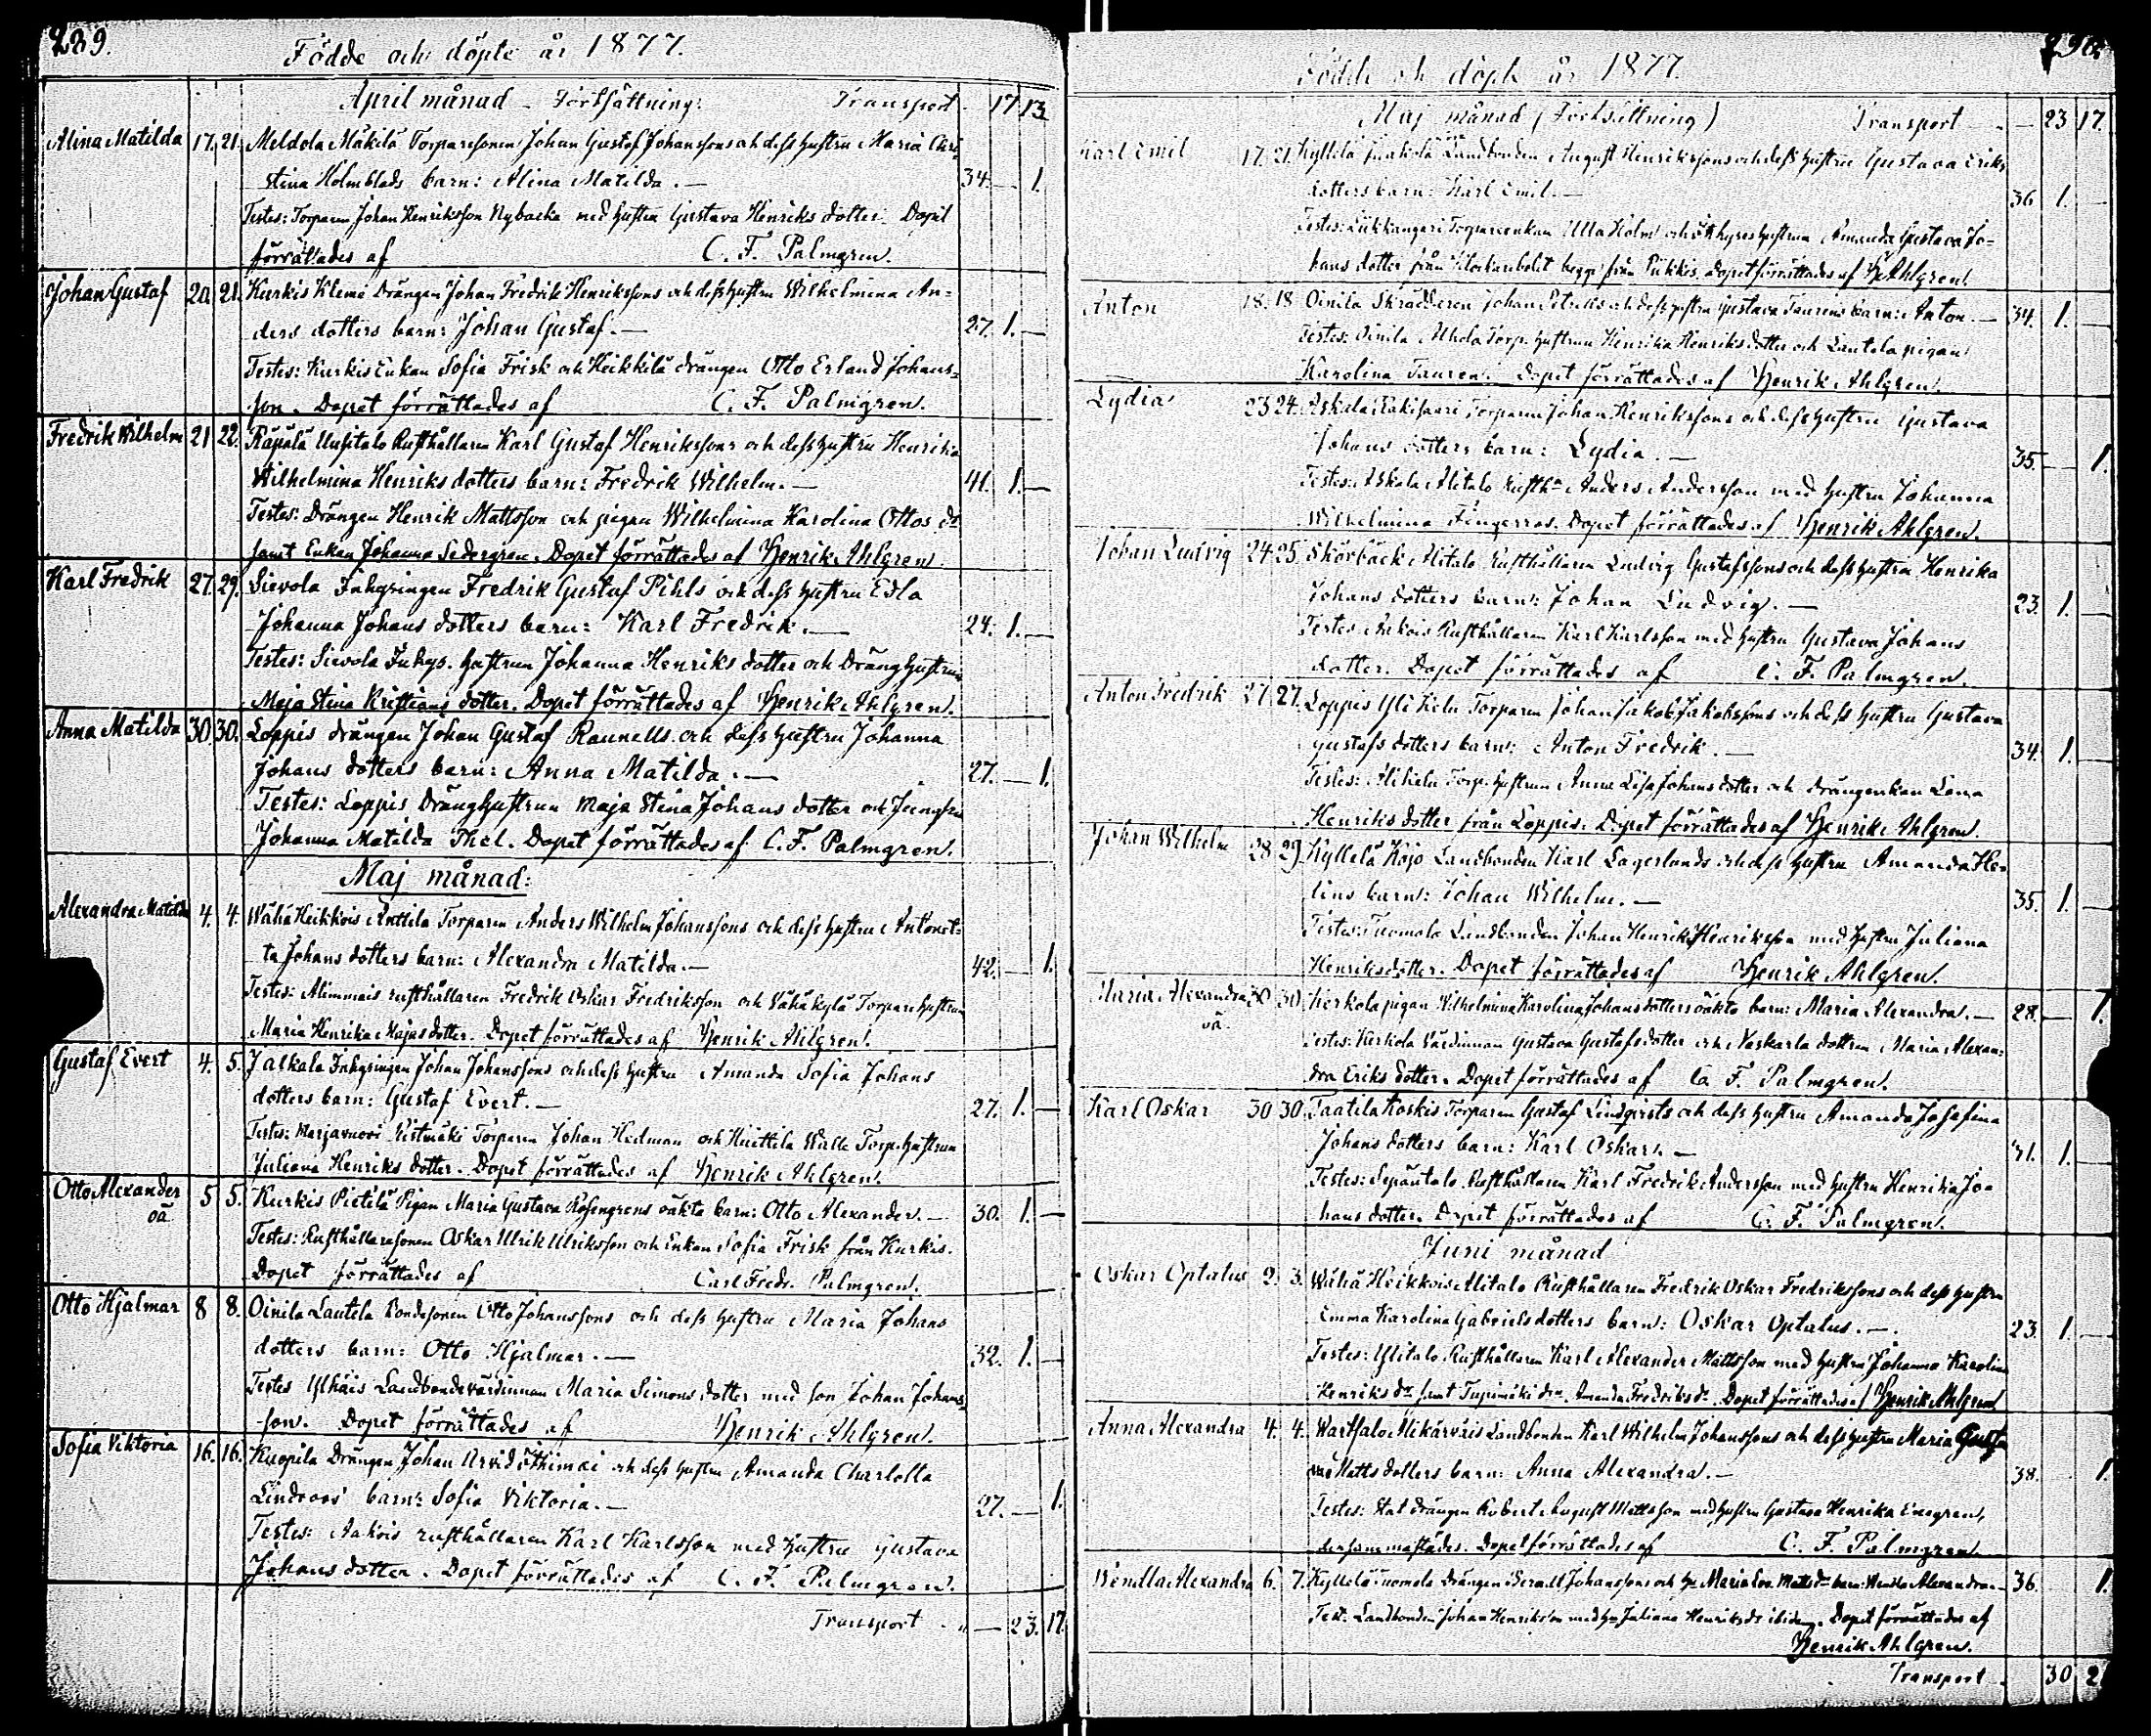 289.
Födde och döpte år 1877.
April månad - Fortsättning: Transport 17 13
Alina Matilda 17. 21. Meldola Mäkilä Torparesonen Johan Gustaf Johanssons och dess hustru Maria Chri-
stina Holmblads barn: Alina Matilda. — 34. — 1.
Testes: Torparen Johan Henriksson Nybacka med hustru Gustava Henriks dotter. Dopet
förrättades af C. F. Palmgren.
Johan Gustaf 20. 21. Kurkis Klemä Drängen Johan Fredrik Henrikssons och dess hustru Wilhelmina An-
ders dotters barn: Johan Gustaf. — 27. 1. —
Testes: Kurkis Enkan Sofia Frisk och Heikkilä drängen Otto Erland Johans-
son. Dopet förrättades af C. F. Palmgren.
Fredrik Wilhelm 21 22. Räpälä Uusitalo Rusthållaren Karl Gustaf Henrikssons och dess hustru Henrika
Wilhelmina Henriks dotters barn: Fredrik Wilhelm. — 41. 1. —
Testes: Drängen Henrik Mattsson och pigan Wilhelmina Karolina Ottos dr
samt Enkan Johanna Sedergren. Dopet förrättades af Henrik Ahlgren.
Karl Fredrik 27. 29. Sievola Inhysingen Fredrik Gustaf Pihls och dess hustru Edla
Johanna Johans dotters barn: Karl Fredrik. — 24. 1. —
Testes: Sievola Inhys. hustrun Johanna Henriks dotter och Dräng hustrun
Maja Stina Kristians dotter. Dopet förrättades af Henrik Ahlgren.
Anna Matilda 30 30. Loppis drängen Johan Gustaf Raunells och dess hustru Johanna
Johans dotters barn: Anna Matilda. — 27. — 1.
Testes: Loppis Dränghustrun Maja Stina Johans dotter och Jungfrun
Johanna Matilda Thel. Dopet förrättades af C. F. Palmgren.
Maj månad:
Alexandra Matilda 4. 4. Wähä Heikkois Anttila Torparen Anders Wilhelm Johanssons och dess hustru Antonet-
ta Johans dotters barn: Alexandra Matilda. — 42. — 1.
Testes: Alimmais rusthållaren Fredrik Oskar Fredriksson och Vähäkylä Torpare hustrun
Maria Henrika Majas dotter. Dopet förrättades af Henrik Ahlgren.
Gustaf Evert 4. 5. Jalkala Inhysingen Johan Johanssons och dess hustru Amanda Sofia Johans
dotters barn: Gustaf Evert. — 27. 1. —
Testes: Marjavuori Ristmäki Torparen Johan Hedman och Huittila Walle Torp. hustrun
Juliana Henriks dotter. Dopet förrättades af Henrik Ahlgren.
Otto Alexander 5 5. Kurkis Pietilä Pigan Maria Gustava Rosengrens oäkta barn: Otto Alexander. — 30. 1. —
oä.
Testes: Rusthållaresonen Oskar Ulrik Ulriksson och Enkan Sofia Frisk från Kurkis.
Dopet förrättades af Carl Fredr. Palmgren.
Otto Hjalmar 8 8. Oinila Lautela Bondesonen Otto Johanssons och dess hustru Maria Johans
dotters barn: Otto Hjalmar. — 32. 1. —
Testes Ylhäis Landbondevärdinnan Maria Simons dotter med son Johan Johans-
son. Dopet förrättades af Henrik Ahlgren.
Sofia Viktoria 16. 16. Kuopila Drängen Johan Arvid och dess hustru Amanda Charlotta
Lindroos' barn: Sofia Viktoria. — 27. — 1.
Testes: Aakois rusthållaren Karl Karlsson med hustru Gustava
Johans dotter. Dopet förrättades af C. F. Palmgren.
Transport — 23. 17.
290.
Födde och döpte år 1877.
Maj månad (Fortsättning) Transport — 23 17.
Karl Emil 17. 21. Kyllelä Landbonden August Henrikssons och dess hustru Gustava Eriks
dotters barn: Karl Emil. — 36 1. —
Testes: Torpareenkan Ulla Holm och hustrun Amanda Gustava Jo-
hans dotter från Klockarebolet begge från Pikkis. Dopet förrättades af H. Ahlgren.
Anton 18. 18 Oinila Skräddaren Johan Petrells och dess hustru Gustava Taurens barn: Anton. — 34. 1. —
Testes: Oinila Torp. hustrun Henrika Henriks dotter och Lautela pigan
Karolina Tauren. Dopet förrättades af Henrik Ahlgren.
Lydia 23 24. Askala Torparen Johan Henrikssons och dess hustru Gustava
Johans dotters barn: Lydia. — 35. — 1.
Testes: Askala Alitalo Rusth. Anders Andersson med hustru Johanna
Wilhelmina Fingerroos. Dopet förrättades af Henrik Ahlgren.
Johan Ludvig 24 25. Skörbäck Alitalo Rusthållaren Ludvig Gustafssons och dess hustru Henrika
Johans dotters barn: Johan Ludvig. — 23. 1. —
Testes: Aakois Rusthållaren Karl Karlsson med hustru Gustava Johans
dotter. Dopet förrättades af C. F. Palmgren.
Anton Fredrik 27 27. Loppis Yli Torparen Johan Jakob Jakobssons och dess hustru Gustava
Gustafs dotters barn: Anton Fredrik. — 34. 1. —
Testes: Torp. hustrun Anna Lisa Johans dotter och drängenkan Lena
Henriks dotter från Loppis. Dopet förrättades af Henrik Ahlgren.
Johan Wilhelm 28 29. Kyllelä Kojo Landbonden Karl Lagerlunds och dess hustru Amanda He-
lins barn: Johan Wilhelm. — 35. 1. —
Testes: Tuomola Landbonden Johan Henrik Henriksson med hustru Juliana
Henriksdotter. Dopet förrättades af Henrik Ahlgren.
Maria Alexandra 30 30. Kerkola pigan Wilhelmina Karolina Johans dotters oäkta barn: Maria Alexandra. — 28. — 1.
oä.
Testes: Kerkola Värdinnan Gustava Gustafsdotter och Naskarla dottren Maria Alexan-
dra Eriks dotter. Dopet förrättades af C. F. Palmgren.
Karl Oskar 30 30. Taatila Koskis Torparen Gustaf Lindqvists och dess hustru Amanda Josefina
Johans dotters barn: Karl Oskar. — 31. 1. —
Testes: Sepäntalo Rusthållaren Karl Fredrik Andersson med hustru Henrika Jo-
hans dotter. Dopet förrättades af C. F. Palmgren.
Juni månad
Oskar Optatus 2. 3. Wähä Heikkois Alitalo Rusthållaren Fredrik Oskar Fredrikssons och dess hustru
Emma Karolina Gabriels dotters barn: Oskar Optatus. —. 23. 1. —
Testes: Ylitalo Rusthållaren Karl Alexander Mattsson med hustru Johanna Karolina
Henriks dr samt Amanda Fredriks dr. Dopet förrättades af Henrik Ahlgren
Anna Alexandra 4. 4. Wartsalo Landbonden Karl Wilhelm Johanssons och dess hustru Maria Gusta
va Matts dotters barn: Anna Alexandra. — 38. 1.
Testes: Stat drängen Robert August Mattsson med hustru Gustava Henrika Enegren,
dersammastädes. Dopet förrättades af C. F. Palmgren.
Wendla Alexandra 6. 7. Kyllelä Tuomola Drängen Johanssons och hu Maria Lov. Matts dr barn: Wendla Alexandra — 36. 1.
Test: Landbonden Johan Henriksson med hu Juliana Henriks dr ibidem. Dopet förrättades af
Henrik Ahlgren.
Transport 30 2